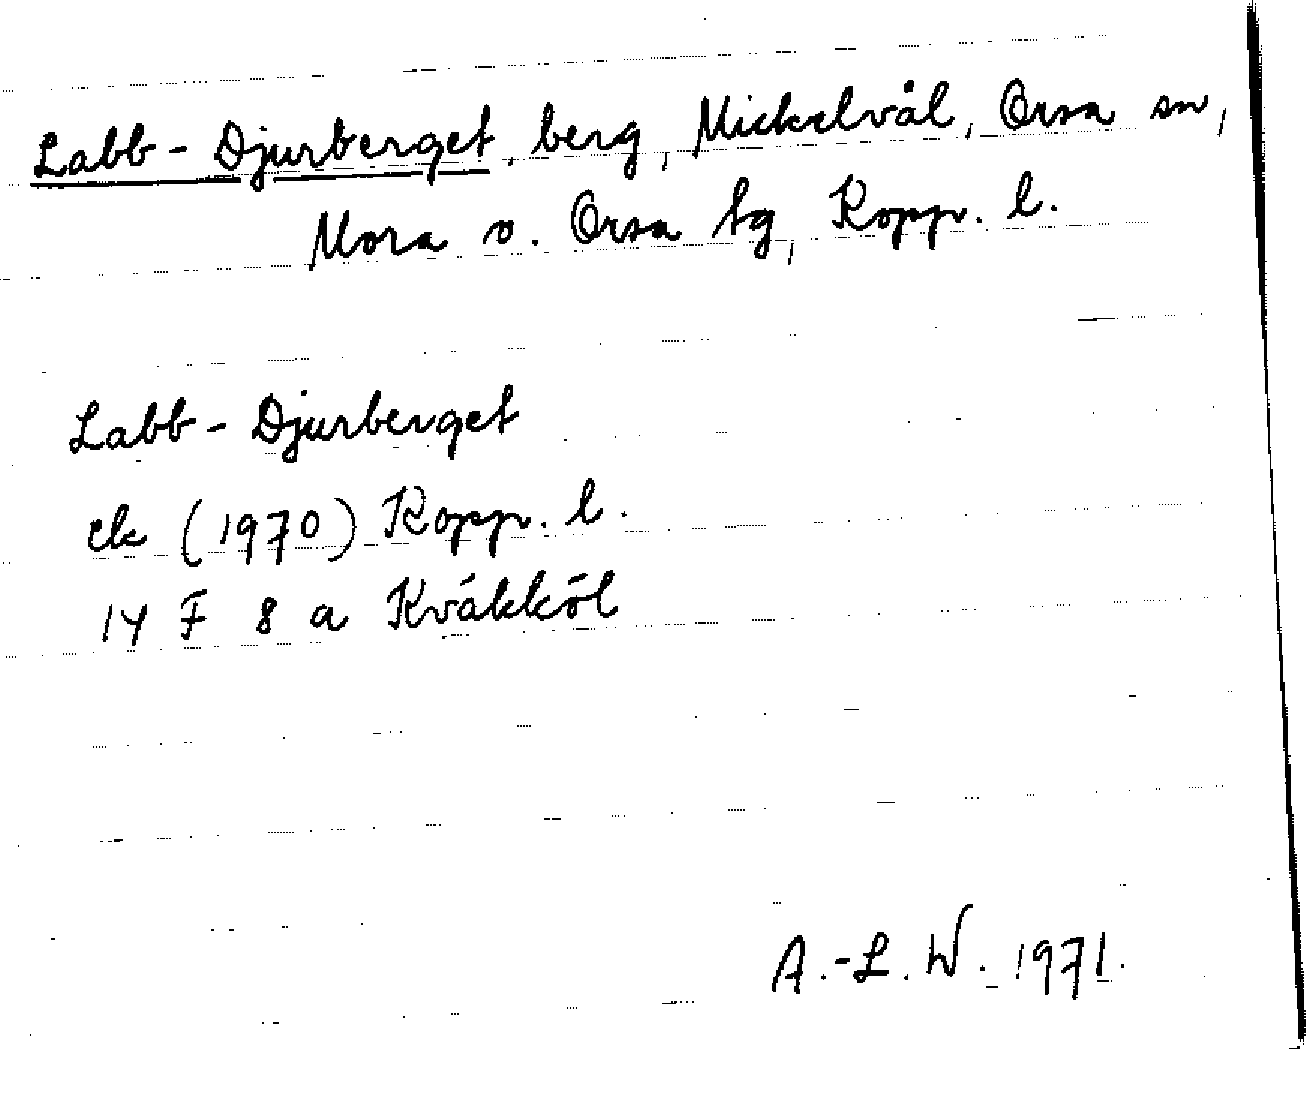 Labb-Djurberget, berg, Mickelvål, Orsa sn,
Mora o. Orsa tg, Kopp. l.
Labb-Djurberget
ek (1970) Kopp. l.
14 F 8 a Kväkköl
A.-L. W. 1971.